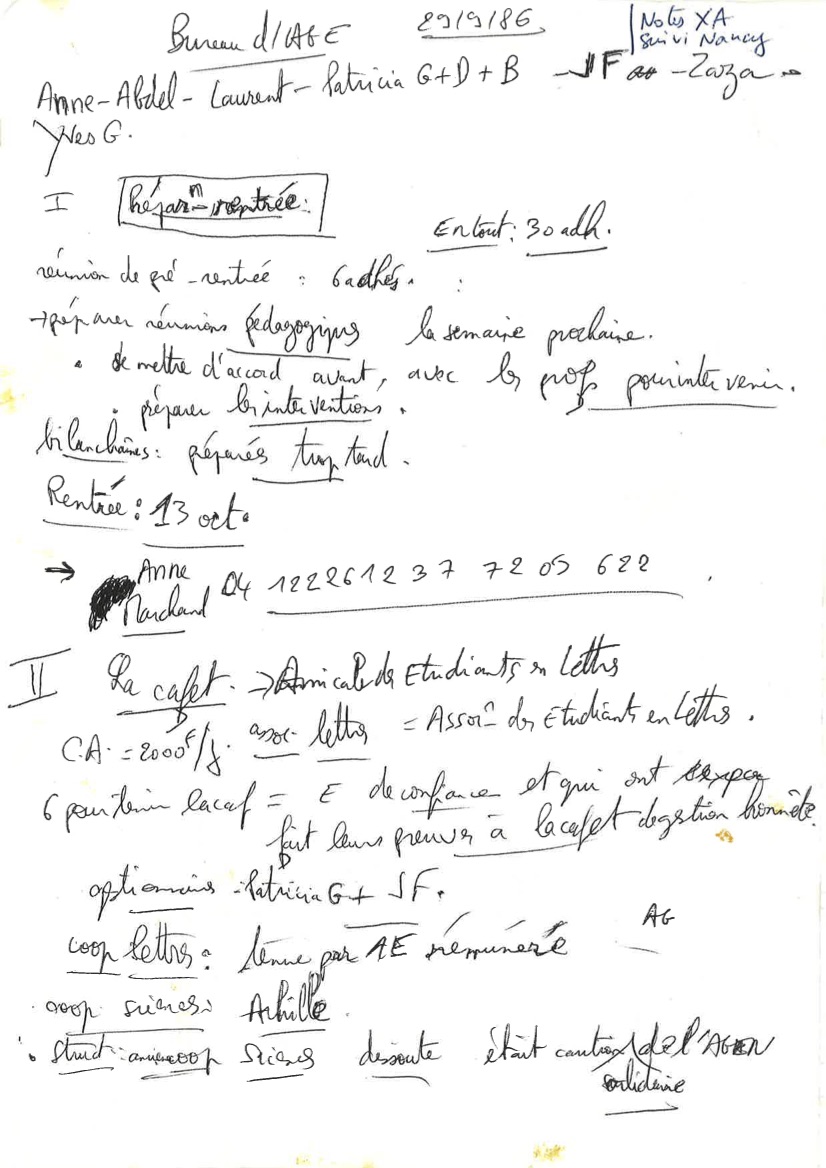 Bureau d'AGE 29/9/86.
Notes XA
Suivi Nancy
Anne - Abdel - Laurent - Patricia G + D + B - JF - Zaza
Yves G.
I Prépar° rentrée :
En tout : 30 adh.
réunion de pré-rentrée : 6 adhés. :
→ préparer réunions pédagogiques la semaine prochaine.
• se mettre d'accord avant, avec les profs pour intervenir.
• préparer les interventions.
bilan chaînes : préparés trop tard.
Rentrée : 13 oct.
→ Anne Marchand 04 1222612 37 72 05 622
II La cafet. → Amicale des Etudiants en Lettres
C.A. = 2000F/j. assoc lettres = Asso° des Etudiants en Lettres.
6 pour tenir la caf = E de confiance et qui ont
fait leurs preuves à la cafet de gestion honnête.
optionnaires : Patricia G + JF.
coop lettres : tenue par AE rémunéré AG
coop sciences : Achille.
• Struct : ancienne coop Sciences dissoute était caution de l'AGEN
solidaire